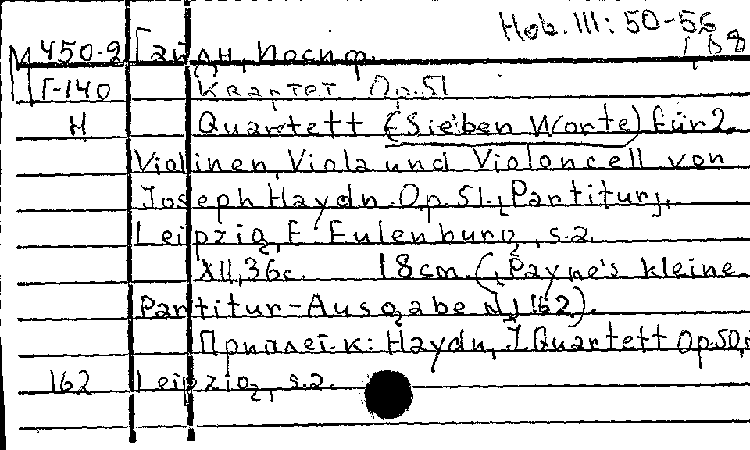 Hob. III: 50-56
М 450-2 Гайдн, Иосиф.
Г-140 Квартет Op. 51
H Quartett (Sieben Worte) für 2
Violinen, Viola und Violoncell von
Joseph Haydn. Op. 51. [Partitur].
Leipzig, E. Eulenburg, s.a.
XII, 36 с. 18 cm. (Payne's kleine
Partitur-Ausgabe N 162).
Приплет. к: Haydn, J. Quartett Op. 50,
162 Leipzig, s.a.